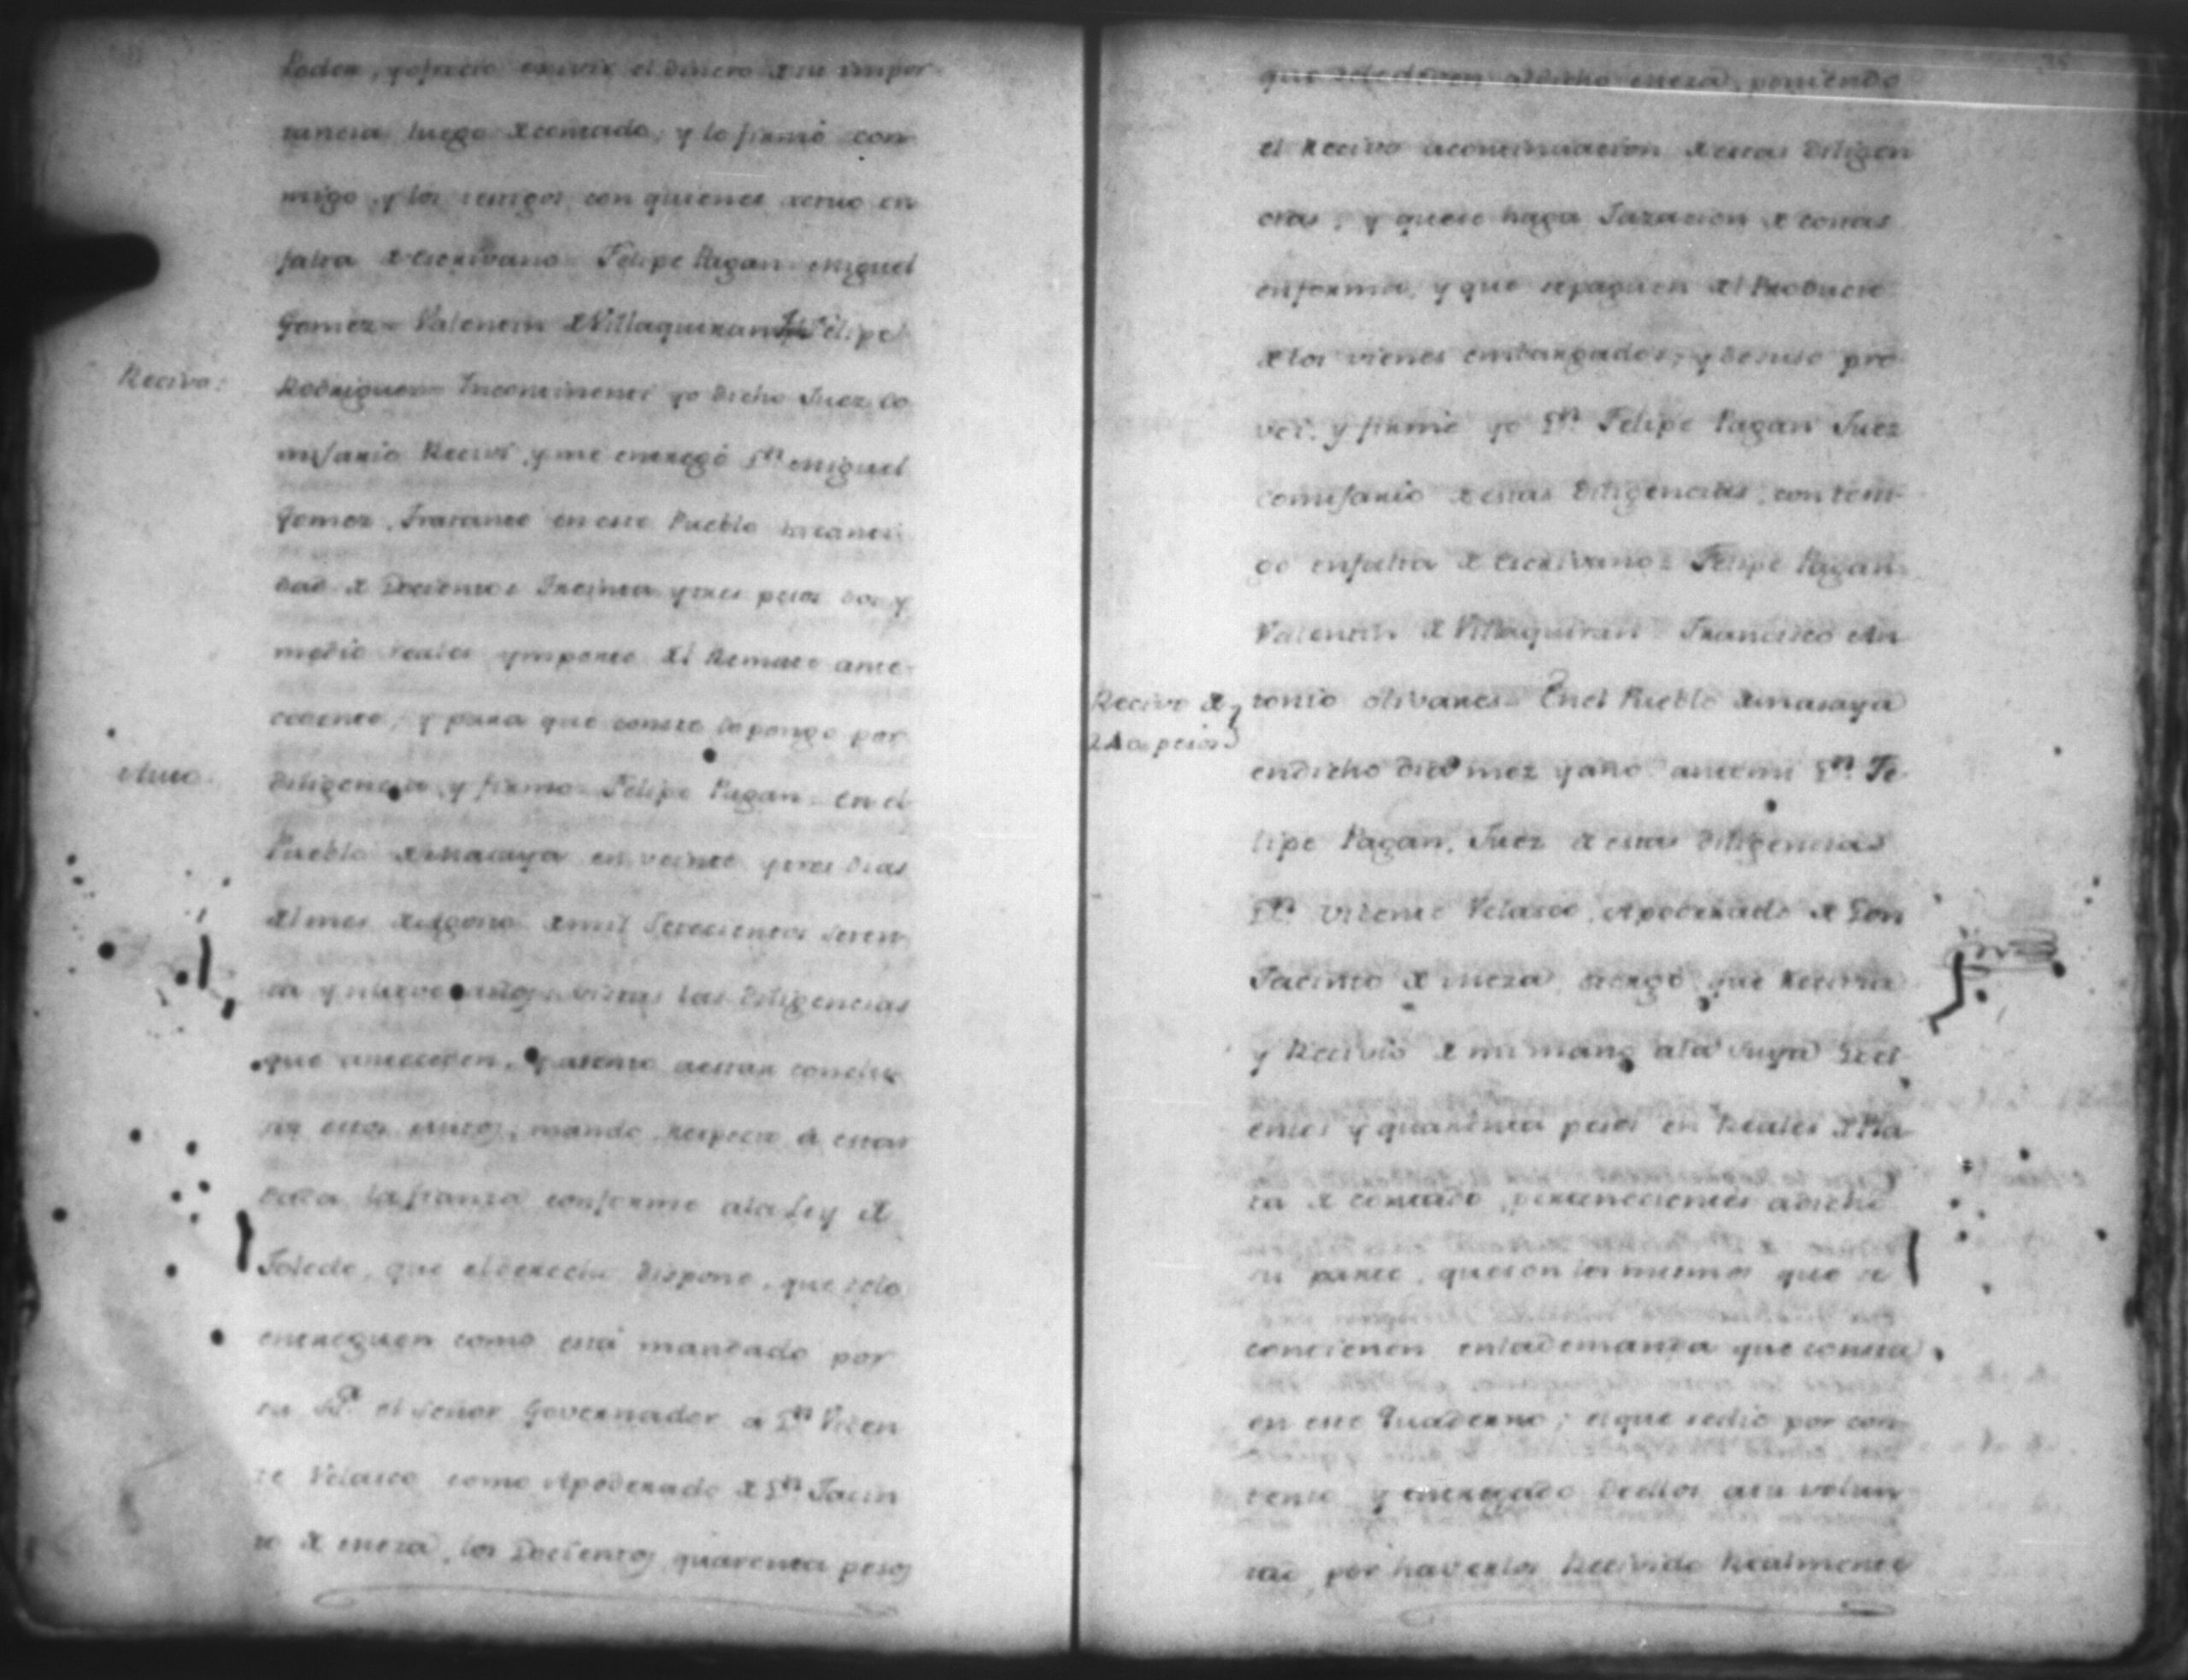 Poder, y ofreció exivir el dinero de su impor-
tancia luego de contado, y lo firmó con-
migo, y los testigos con quienes actuo en
falta de escrivano = Felipe Pagan = Miguel
Gomez = Valentin de Villaquiran = Felipe
Recivo:
Rodriguez = Incontinenti yo dicho Juez co
misario Recivi, y me entregó Dn Miguel
Gomez, Tratante en este Pueblo la canti-
dad de Docientos Treinta y tres pesos dos y
medio reales ymporte del Remate ante-
cedente, y para que conste lo pongo por
Auto.
diligencia y firmo = Felipe Pagan = En el
Pueblo de Masaya en veinte y tres dias
del mes de Agosto de mil Setecientos seten-
ta y nueve años: vistas las diligencias
que anteceden, y atento a estar conclu
sos estos autos, mando, respecto á estar
dada la fianza conforme a la Ley de
Toledo, que el derecho dispone, que se le
entreguen como está mandado por
su Sª el Señor Governador á Dn Vicen
te Velasco como Apoderado de Dn Jacin
to de Meza, los Docientos quarenta pesos
que se le deven a dicho Meza, poniendo
el Recivo a continuacion de estas diligen
cias, y que se haga Tazacion de costas
en forma, y que se paguen del Producto
de los vienes embargados; y de suso pro
vei, y firmé yo Dn Felipe Pagan Juez
comisario de estas diligencias, con testi-
go en falta de escrivano = Felipe Pagan =
Valentin de Villaquiran = Francisco An
Recivo de
240 pesos
tonio Olivares = En el Pueblo de Masaya
en dicho dia mez y año ante mi Dn Fe-
lipe Pagan, Juez de estas diligencias
Dn Vicente Velasco, Apoderado de Don
Jacinto de Meza, otorgó que Recivia
y Recivió de mi mano a la suya Doci
entos y quarenta pesos en Reales de Pla
ta de contado, pertenecientes a dicho
su parte, que son los mismos que se
contienen en la demanda que consta
en este Quaderno; el que se dió por con
tento y entregado de ellos a su volun
tad, por haverlos Recivido Realmente